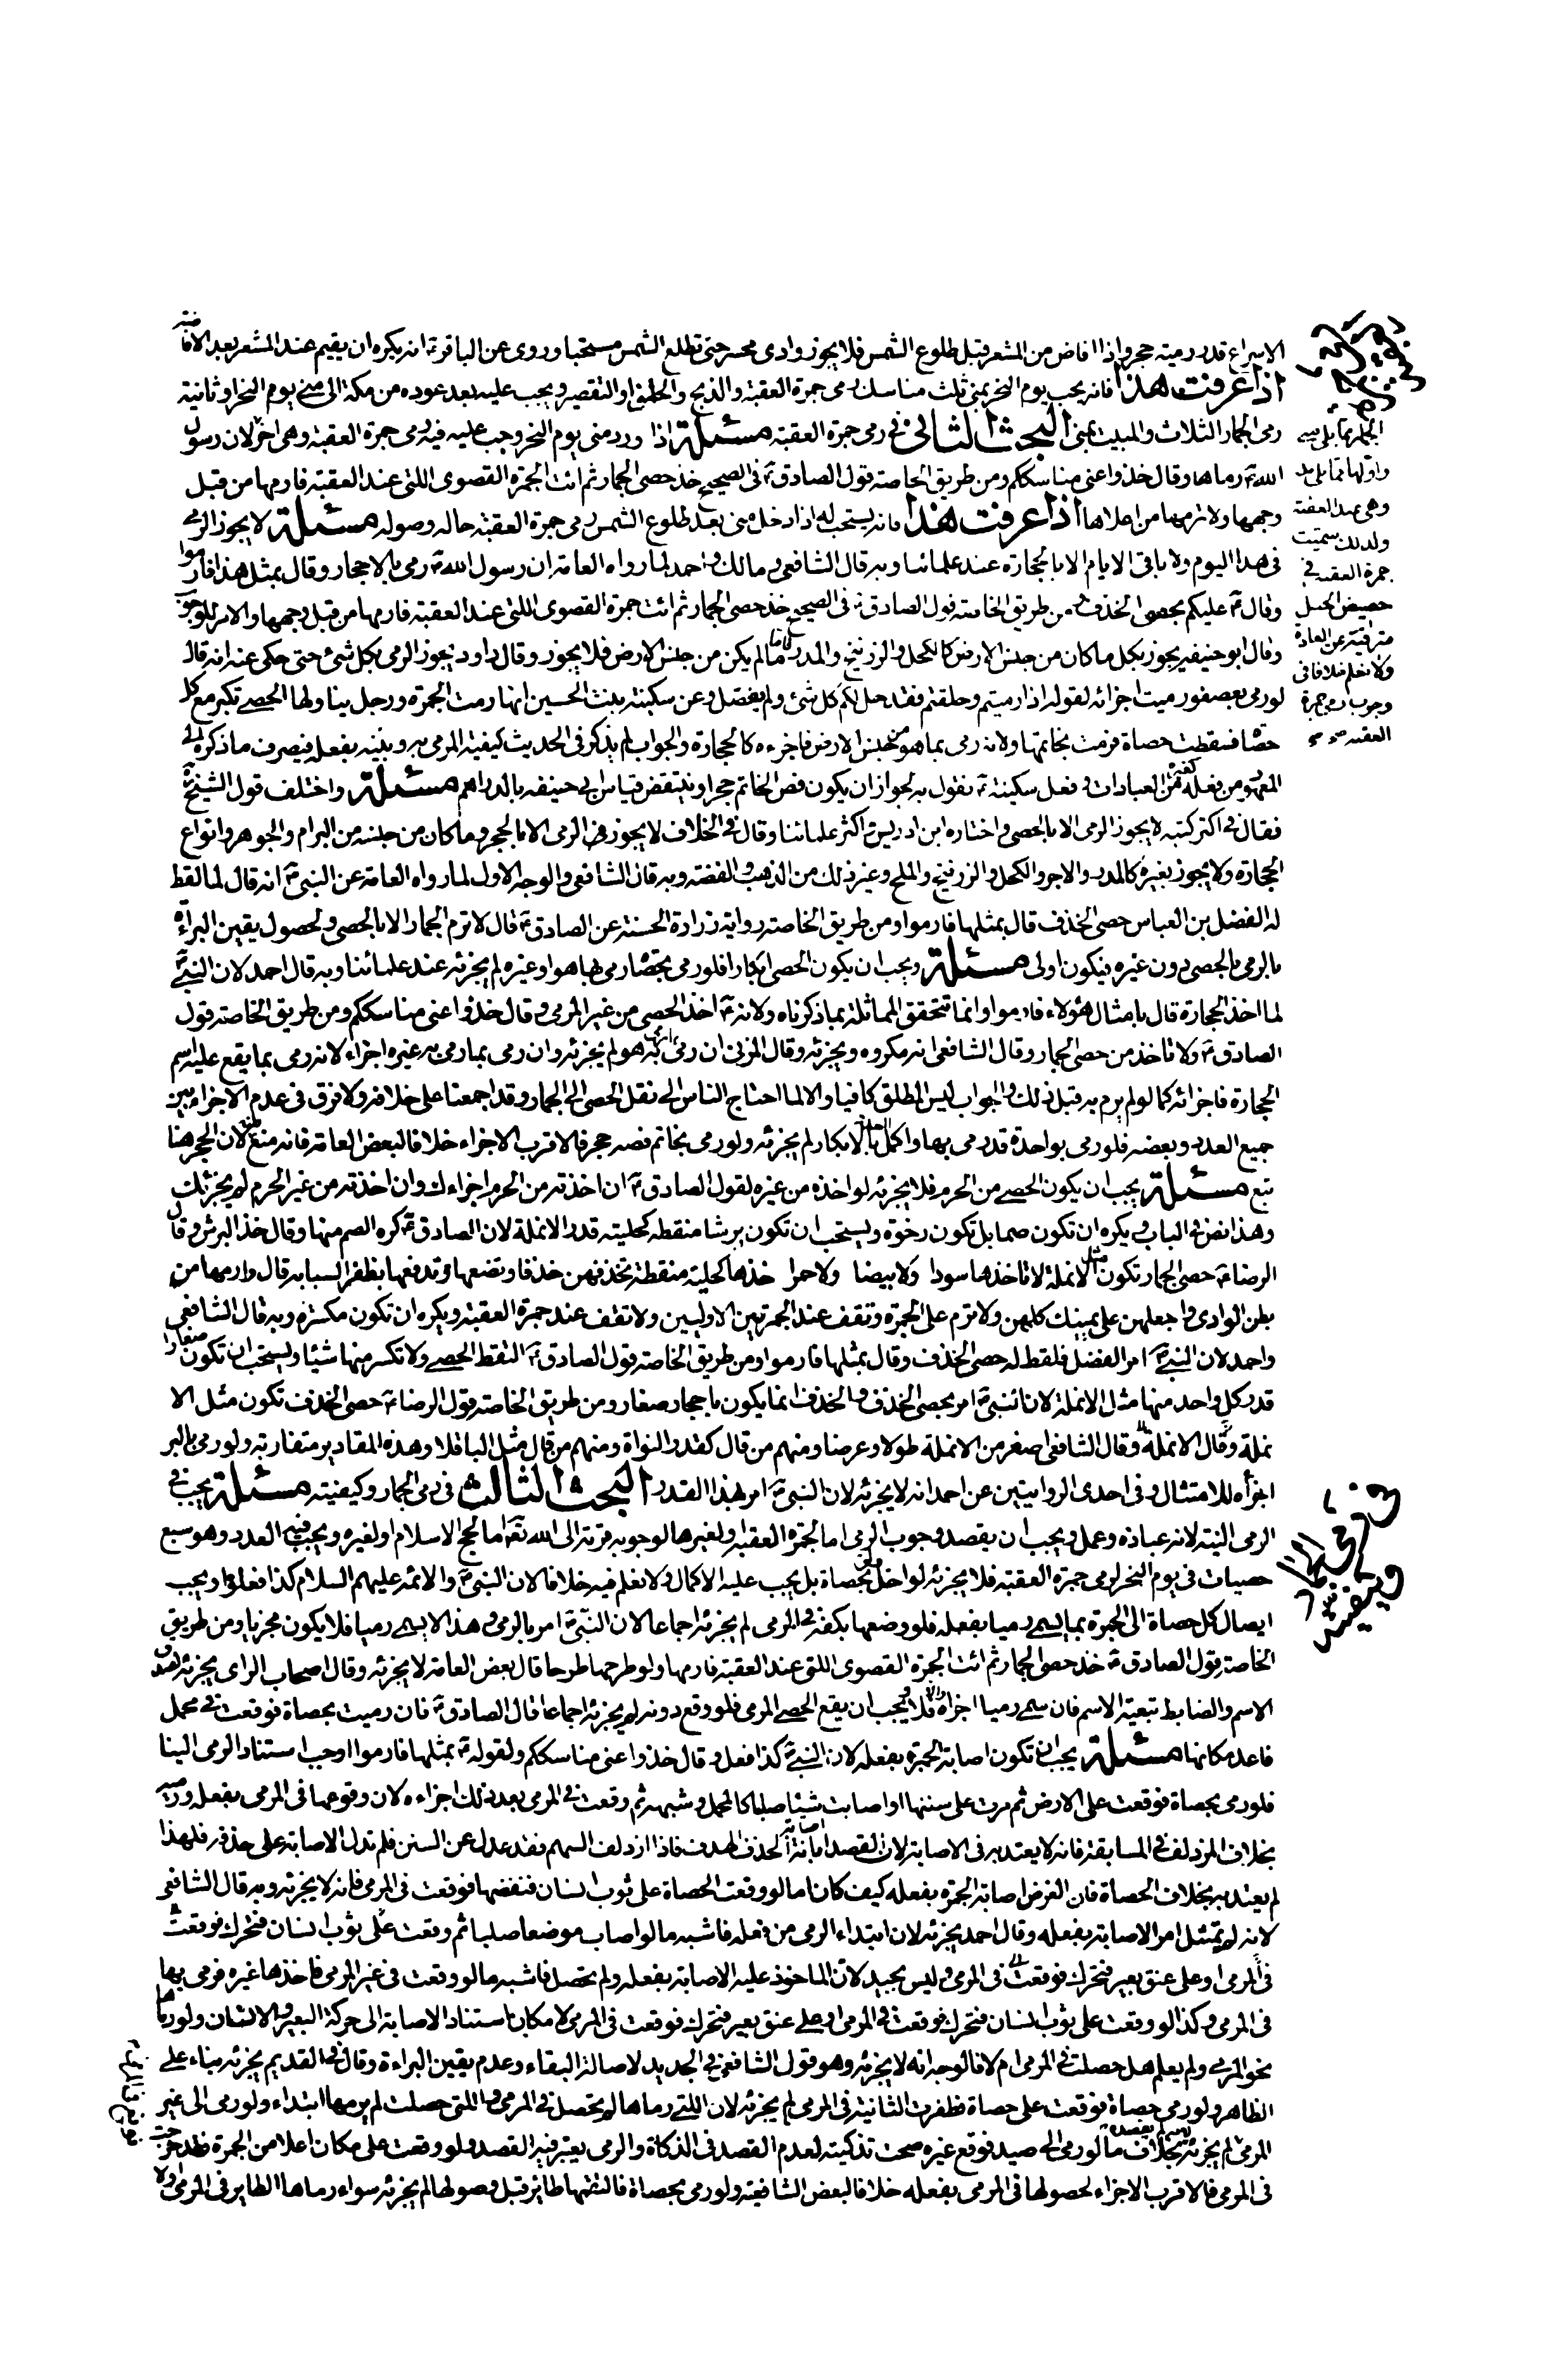 الاسراع قدر رميته حجر واذا افاض من المشعر قبل طلوع الشمس فلا يجوز وادى محسر حتى تطلع الشمس مستحبا وروى عن الباقر ع انه يكره ان يقيم عند المشعر بعد الافاضة
اذا عرفت هذا فانه يجب يوم النحر بمنى ثلث مناسك رمى جمرة العقبة والذبح والحلق او التقصير ويجب عليه بعد عوده من مكة الى منى يوم النحر او ثانية
رمى الجمار الثلاث والمبيت بمنى البحث الثانى فى رمى جمرة العقبة مسئلة اذا ورد منى يوم النحر وجب عليه فيه رمى جمرة العقبة وهى اخر لان رسول
الله ص رماها وقال خذوا عنى مناسككم ومن طريق الخاصة قول الصادق ع فى الصحيح خذ حصى الجمار ثم ائت الجمرة القصوى اللتى عند العقبة فارمها من قبل
وجهها ولا ترمها من اعلاها اذا عرفت هذا فانه يستحب له اذا دخل منى بعد طلوع الشمس رمى جمرة العقبة حالة وصوله مسئلة لا يجوز الرمى
فى هذا اليوم ولا باقى الايام الا بالحجارة عند علمائنا وبه قال الشافعى ومالك واحمد لما رواه العامة ان رسول الله ص رمى بالاحجار وقال بمثل هذا فارموا
وقال ع عليكم بحصى الخذف ومن طريق الخاصة قول الصادق ع فى الصحيح خذ حصى الجمار ثم ائت جمرة القصوى اللتى عند العقبة فارمها من قبل وجهها والامر للوجوب
وقال ابو حنيفه يجوز بكل ما كان من جنس الارض كالكحل والزرنيخ والمدر فاما ما لم يكن من جنس الارض فلا يجوز وقال داود يجوز الرمى بكل شئ حتى حكى عنه انه قال
لو رمى بعصفور ميت اجزائه لقوله اذا رميتم وحلقتم فقد حل لكم كل شئ ولم يفصل وعن سكينة بنت الحسين انها رمت الجمرة ورجل يناولها الحصى تكبر مع كل
حصاة فسقطت حصاة فرمت بخاتمها ولانه رمى بما هو من جنس الارض فاجزءه كالحجارة والجواب لم يذكر فى الحديث كيفية المرمى به وبينه بفعله فيصرف ما ذكره الى
المعهود من فعله كغيره من العبادات وفعل سكينة ع نقول به لجواز ان يكون فص الخاتم حجرا وينتقض قياس ابى حنيفه بالدراهم مسئلة واختلف قول الشيخ ره
فقال فى اكثر كتبه لا يجوز الرمى الا بالحصى واختاره ابن ادريس واكثر علمائنا وقال فى الخلاف لا يجوز فى الرمى الا بالحجر وما كان من جنسه من البرام والجوهر وانواع
الحجارة ولا يجوز بغيره كالمدر والاجر والكحل والزرنيخ والملح وغير ذلك من الذهب والفضه وبه قال الشافعى والوجه الاول لما رواه العامة عن النبى ص انه قال لما لقط
له الفضل بن العباس حصى الخذف قال بمثلها فارموا ومن طريق الخاصة رواية زرارة الحسنة عن الصادق ع قال لا ترم الجمار الا بالحصى ولحصول يقين البراءة
بالرمى بالحصى دون غيره فيكون اولى مسئلة ويجب ان يكون الحصى ابكارا فلو رمى بحصاة رمى بها هو او غيره لم يجزئه عند علمائنا وبه قال احمد لان النبى ص
لما اخذ الحجارة قال بامثال هؤلاء فارموا وانما تتحقق المماثلة بما ذكرناه ولانه ص اخذ الحصى من غير المرمى وقال خذوا عنى مناسككم ومن طريق الخاصة قول
الصادق ع ولا تاخذ من حصى الجمار وقال الشافعى انه مكروه ويجزئه وقال المزنى ان رمى بما رمى به هو لم يجزئه وان رمى بما رمى به غيره اجزاء لانه رمى بما يقع عليه اسم
الحجارة فاجزائه كما لو لم يرم به قبل ذلك والجواب ليس المطلق كافيا والا لما احتاج الناس الى نقل الحصى الى الجمار وقد اجمعنا على خلافه ولا فرق فى عدم الاجزاء بين
جميع العدد وبعضه فلو رمى بواحدة قد رمى بها واكمل الباقى بالابكار لم يجزئه ولو رمى بخاتم فصه حجر فالاقرب الاجزاء خلافا لبعض العامة فانه منع منه لان الحجر هنا
تبع مسئلة يجب ان يكون الحصى من الحرم فلا يجزئه لو اخذه من غيره لقول الصادق ع ان اخذته من الحرم اجزاءك وان اخذته من غير الحرم لم يجزئك
وهذا نص فى الباب ويكره ان تكون صما بل تكون رخوة ويستحب ان تكون برشا منقطه كحلية قدر الانملة لان الصادق ع كره الصم منها وقال خذ البرش وقال
الرضا ع حصى الجمار تكون مثل الانملة لا تاخذها سودا ولا بيضا ولا حمرا خذها كحلية منقطة تخذفهن خذفا وتضعها وتدفعها بظفر السبابة قال وارمها من
بطن الوادى واجعلهن على يمينك كلهن ولا ترم على الجمرة وتقف عند الجمرتين الاوليين ولا تقف عند جمرة العقبة ويكره ان تكون مكسرة وبه قال الشافعى
واحمد لان النبى ص امر الفضل فلقط له حصى الخذف وقال بمثلها فارموا ومن طريق الخاصة قول الصادق ع التقط الحصى ولا تكسر منها شيئا ويستحب ان تكون صغارا
قدر كل واحد منها مثل الانملة لان النبى ص امر بحصى الخذف والخذف انما يكون باحجار صغار ومن طريق الخاصة قول الرضا ع حصى الخذف تكون مثل الا
نملة وقال الشافعى اصغر من الانملة طولا وعرضا ومنهم من قال كقدر النواة ومنهم من قال مثل الباقلا وهذه المقادير متقاربة ولو رمى بالبر
اجزأه للامتثال وفى احدى الروايتين عن احمد انه لا يجزئه لان النبى ص امر بهذا القدر البحث الثالث فى رمى الجمار وكيفيته مسئلة يجب فى
الرمى النية لانه عبادة وعمل ويجب ان يقصد وجوب الرمى اما لجمرة العقبة او لغيرها لوجوبه قربة الى الله تعالى اما لحج الاسلام او لغيره ويجب فيه العدد وهو سبع
حصيات فى يوم النحر لرمى جمرة العقبة فلا يجزئه لو اخل ولو بحصاة بل يجب عليه الاكمال ولا نعلم فيه خلافا لان النبى ص والائمة عليهم السلام كذا فعلوا ويجب
ايصال كل حصاة الى الجمرة بما يسمى رميا بفعله فلو وضعها بكفه فى المرمى لم يجزئه اجماعا لان النبى ص امر بالرمى وهذا لا يسمى رميا فلا يكون مجزيا ومن طريق
الخاصة قول الصادق ع خذ حصى الجمار ثم ائت الجمرة القصوى اللتى عند العقبة فارمها ولو طرحها طرحا قال بعض العامة لا يجزئه وقال اصحاب الراى يجزئه لصدق
الاسم والضابط تبعية الاسم فان سمى رميا اجزاه والا فلا ويجب ان يقع الحصى المرمى فلو وقع دونه لم يجزئه اجماعا قال الصادق ع فان رميت بحصاة فوقعت فى محمل
فاعد مكانها مسئلة يجب ان تكون اصابة الجمرة بفعله لان النبى ص كذا فعل وقال خذوا عنى مناسككم ولقوله ص بمثلها فارموا اوجب استناد الرمى الينا
فلو رمى بحصاة فوقعت على الارض ثم مرت على سننها او اصابت شيئا صلبا كالمحمل وشبهه ثم وقعت فى المرمى بعد ذلك اجزاءه لان وقوعها فى المرمى بفعله ورميه
بخلاف المزدلف فى المسابقة فانه لا يعتد به فى الاصابة لان القصد ابانة الحذق اصابة الهدف فاذا ازدلف السهم فقد عدل عن السنن فلم تدل الاصابة على حذقه فلهذا
لم يعتد به بخلاف الحصاة فان الغرض اصابة الجمرة بفعله كيف كان اما لو وقعت الحصاة على ثوب انسان فنفضها فوقعت فى المرمى فانه لا يجزئه وبه قال الشافعى
لانه لم يمتثل امر الاصابة بفعله وقال احمد يجزئه لان ابتداء الرمى من فعله فاشبه ما لو اصاب موضعا صلبا ثم وقعت على ثوب انسان فتحرك فوقعت
فى المرمى او على عنق بعير فتحرك فوقعت فى المرمى وليس بجيد لان الماخوذ عليه الاصابة بفعله ولم تحصل فاشبه ما لو وقعت فى غير المرمى فاخذها غيره فرمى بها
فى المرمى وكذا لو وقعت على ثوب انسان فتحرك فوقعت فى المرمى او على عنق بعير فتحرك فوقعت فى المرمى لامكان استناد الاصابة الى حركة البعير والانسان ولو رماها
نحو المرمى ولم يعلم هل حصلت فى المرمى ام لا فالوجه انه لا يجزئه وهو قول الشافعى فى الجديد لاصالة البقاء وعدم يقين البراءة وقال فى القديم يجزئه بناء على
الظاهر ولو رمى حصاة فوقعت على حصاة فطفرت الثانية فى المرمى لم يجزئه لان اللتى رماها لم تحصل فى المرمى واللتى حصلت لم يرمها ابتداء ولو رمى الى غير
المرمى لم يجزئه بخلاف ما لو رمى الى صيد فوقع غيره صحت تذكيته لعدم القصد فى الذكاة والرمى يعتبر فيه القصد ولو وقعت على مكان اعلا من الجمرة فتدحرجت
فى المرمى فالاقرب الاجزاء لحصولها فى المرمى بفعله خلافا لبعض الشافعية ولو رمى بحصاة فالتقمها طائر قبل وصولها لم يجزئه سواء رماها الطاير فى المرمى او لا
الجمار مما يلى منى
واولها مما يلى مكة
وهى عند العقبة
ولذلك سميت
جمرة العقبه فى
حضيض الجبل
مترقية عن الجادة
ولا نعلم خلافا فى
وجوب رمى جمرة
العقبه
فى رمى الجمار
وكيفيته